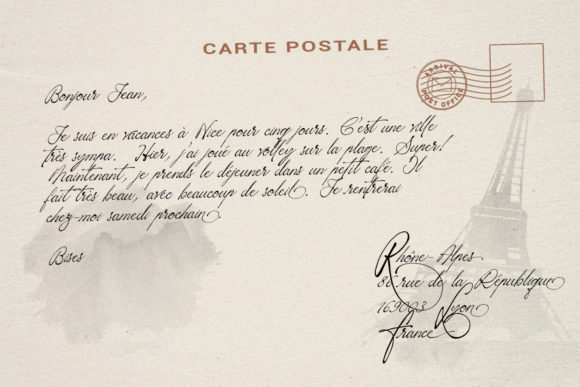 CARTE POSTALE
ARRIVAL
POST OFFICE
Bonjour Jean,
Je suis en vacances à Nice pour cinq jours. C'est une ville
très sympa. Hier, j'ai joué au volley sur la plage. Super!
Maintenant, je prends le déjeuner dans un petit café. Il
fait très beau, avec beaucoup de soleil. Je rentrerai
chez-moi samedi prochain.
Bises
Rhône-Alpes
86 rue de la République
169003 Lyon
France